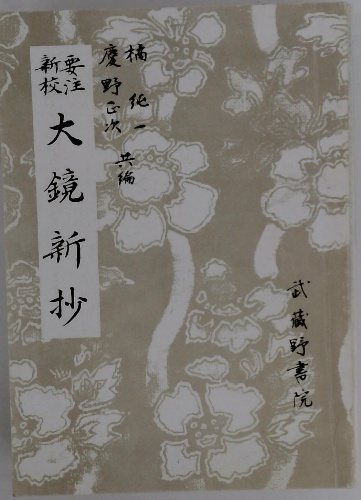 橘純一
慶野正次 共編
要注
新校
大鏡新抄
武蔵野書院